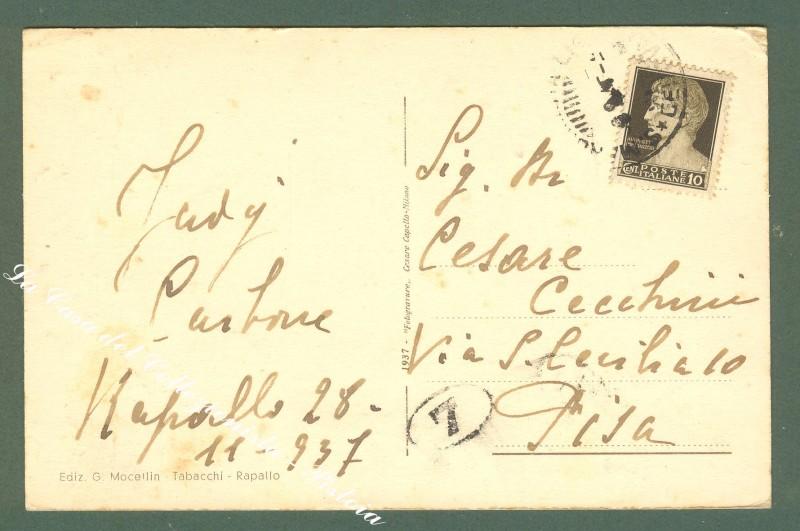 Judy
Carbone
Rapallo 28-
11-937
Ediz. G. Mocellin - Tabacchi - Rapallo
1937 - "Fotogravure,, Cesare Capello - Milano
POSTE
ITALIANE
CENT. 10
Sig.
Cesare
Cecchini
Via S. Cecilia 10
Pisa
7
La Casa del Collezionista